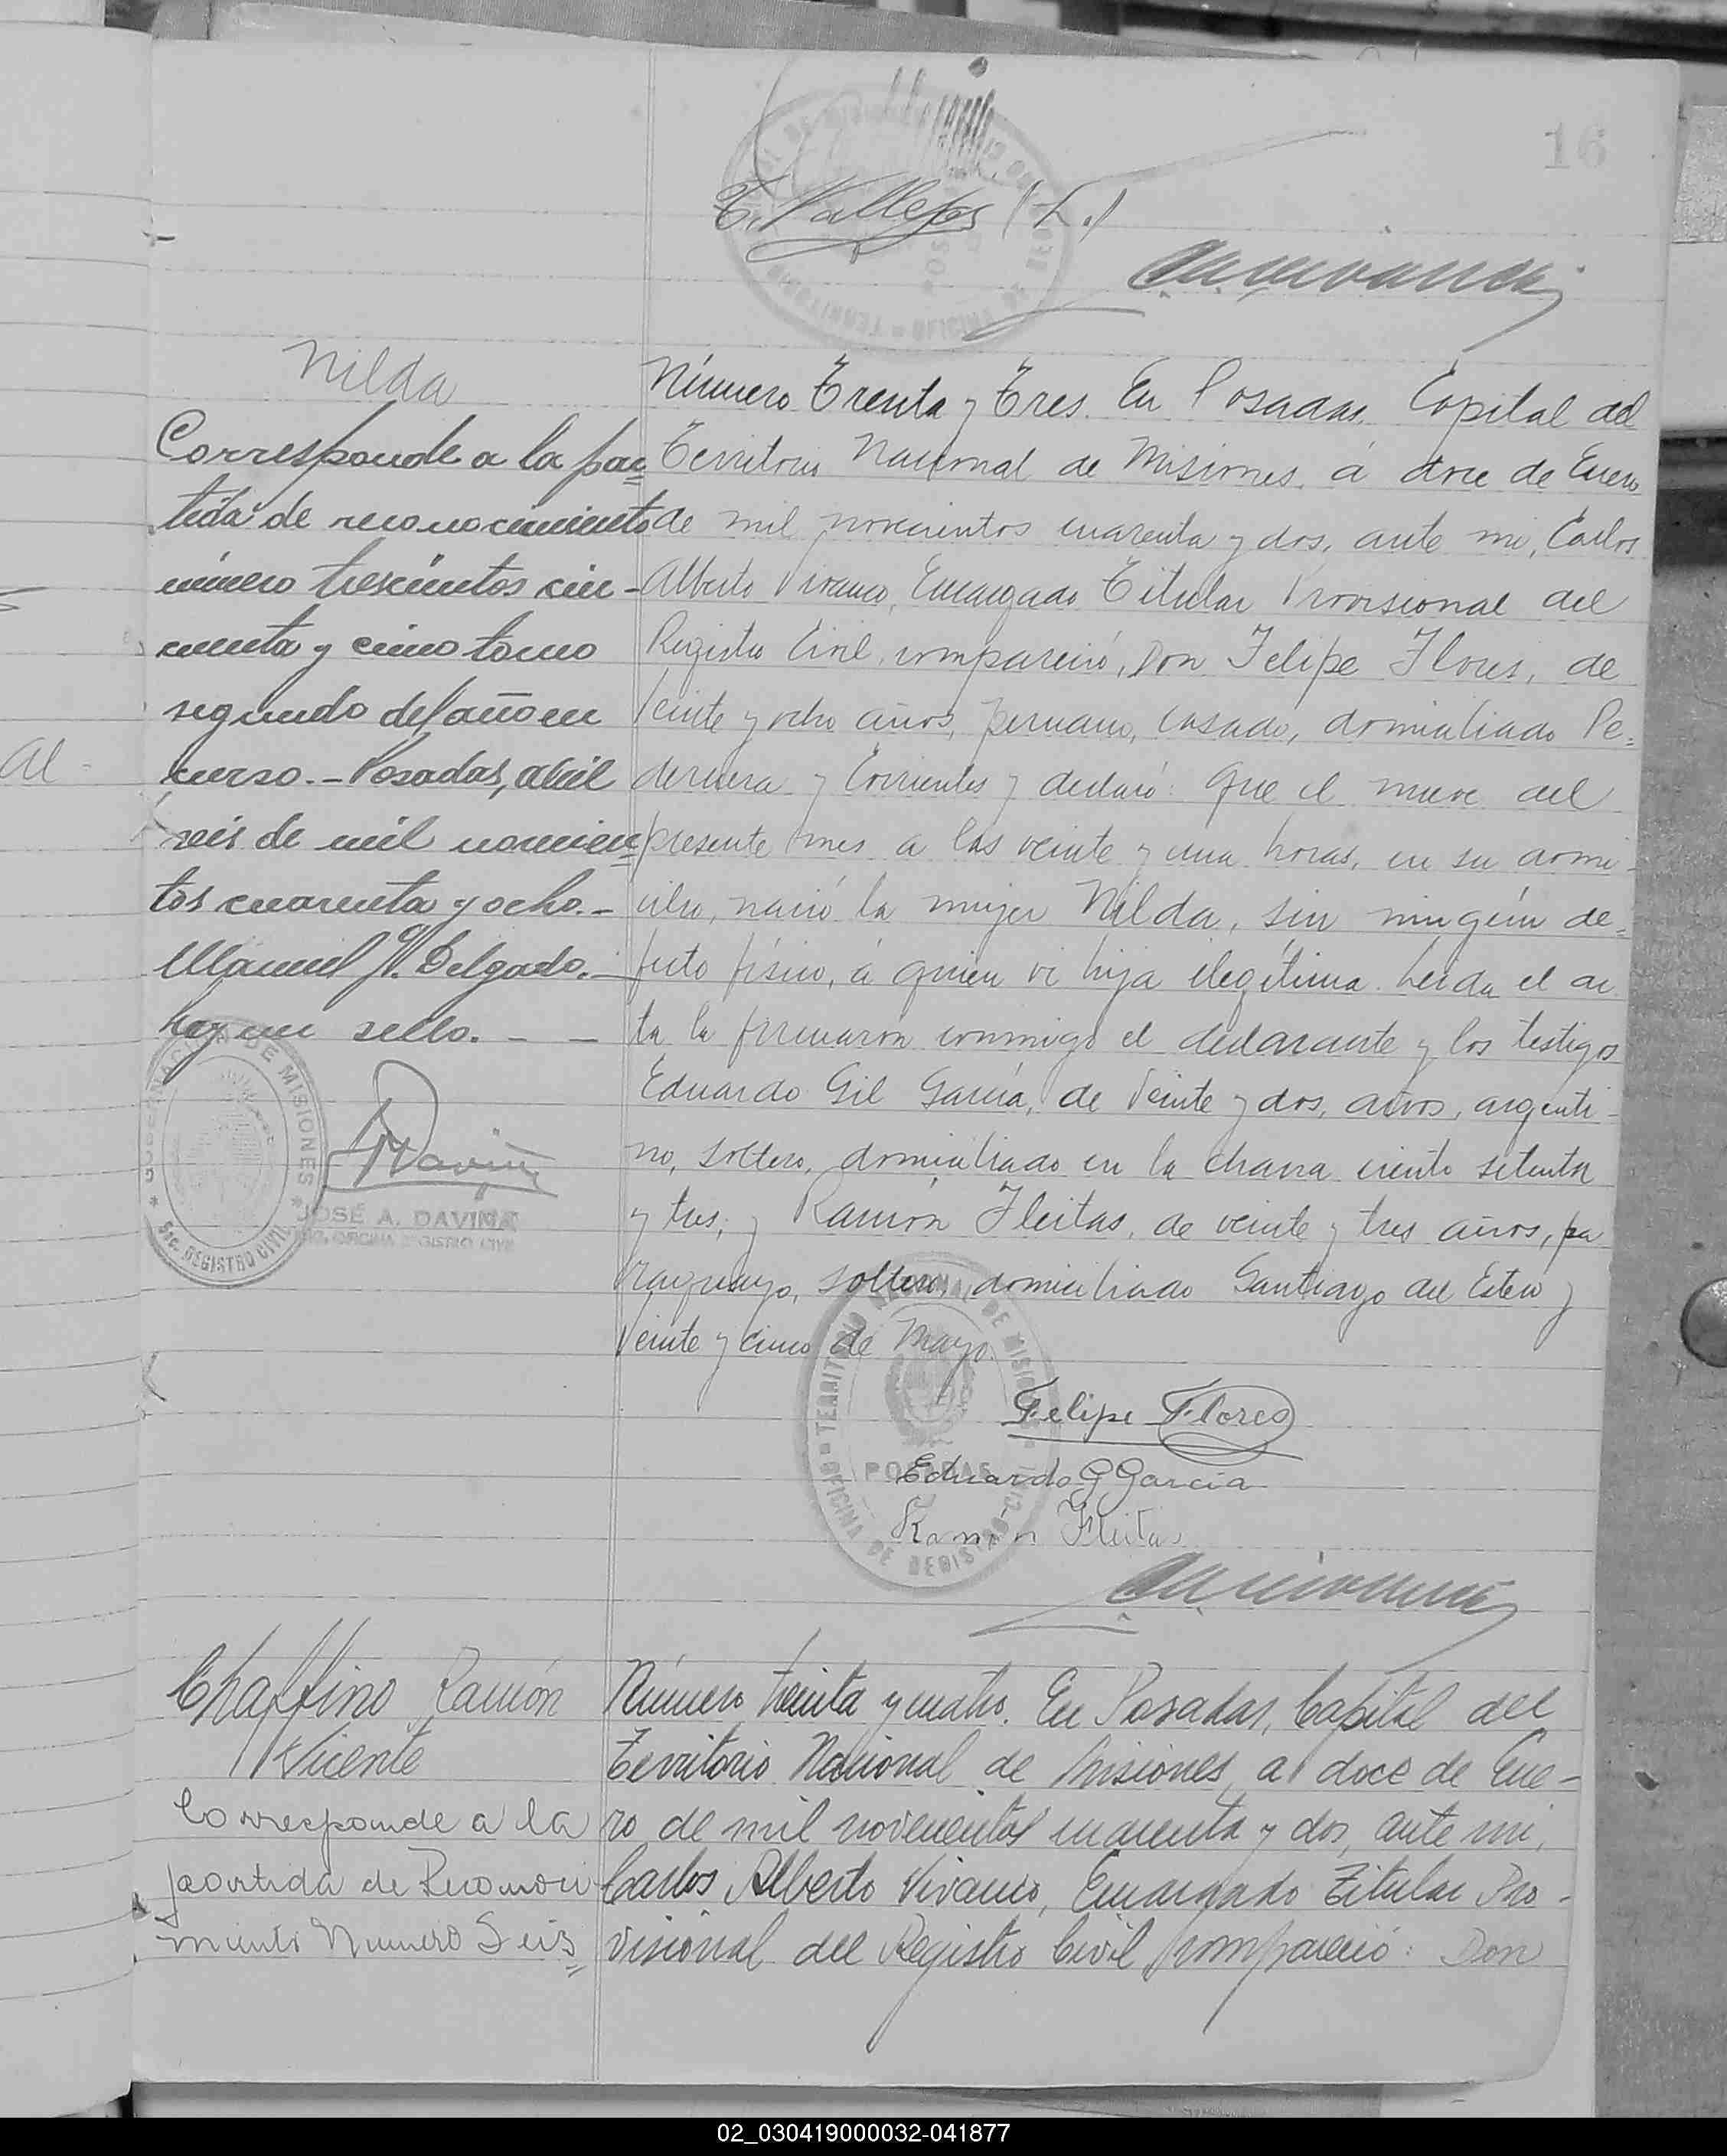 16
T. Vallejos (h.)
Nilda
Corresponde a la par=
tida de reconocimiento
número trescientos cin-
cuenta y cinco tomo
segundo del año en
curso.- Posadas, abril
seis de mil novecien=
tos cuarenta y ocho.-
Manuel J. Delgado.-
hay un sello. - -
GOBERNACION DE MISIONES
REGISTRO CIVIL
JOSÉ A. DAVIÑA
ENC. OFICINA REGISTRO CIVIL
Número Trenta y Tres. En Posadas, Capital del
Territorio Nacional de Misiones, á doce de Enero
de mil novecientos cuarenta y dos, ante mi, Carlos
Alberto Vivanco, Encargado Titular Provisional del
Registro Civil, compareció, Don Felipe Flores, de
veinte y ocho años, peruano, casado, domiciliado Pe=
dernera y Corrientes y declaró: Que el nueve del
presente mes a las veinte y una horas, en su domi-
cilio, nació la mujer Nilda, sin ningún de=
fecto físico, á quien vi hija ilegítima. Leida el ac
ta la firmaron conmigo el declarante y los testigos
Eduardo Gil García, de veinte y dos, años, argenti-
no, soltero, domiciliado en la chacra ciento setenta
y tres, y Ramón Fleitas, de veinte y tres años, pa
raguayo, soltero, domiciliado Santiago del Estero y
veinte y cinco de Mayo.
TERRITORIO NACIONAL DE MISIONES
OFICINA DE REGISTRO CIVIL
POSADAS
Felipe Flores
Eduardo G García
Ramón Fleitas
Chaffino Ramón
Vicente
Corresponde a la
partida de Reconoci
miento Numero Seis=
Número treinta y cuatro. En Posadas, Capital del
Territorio Nacional de Misiones, a doce de Ene-
ro de mil novecientos cuarenta y dos, ante mi,
Carlos Alberto Vivanco, Encargado Titular Pro-
visional del Registro Civil compareció: Don
02_030419000032-041877